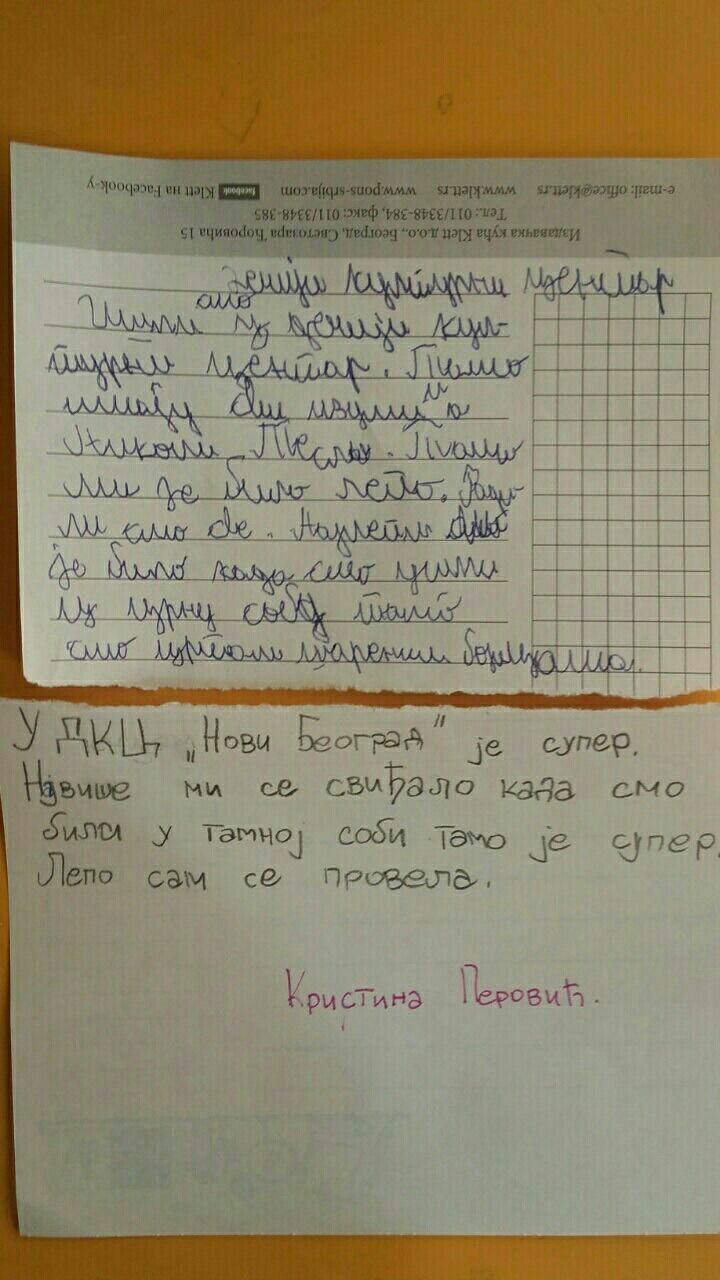 e-mail: office@klett.rs www.klett.rs www.pons-srbija.com facebook Klett на Facebook-у
Тел.: 011/3348-384, факс: 011/3348-385
Издавачка кућа Klett д.о.о., Београд, Светозара Ћоровића 15
дечији културни центар
Ишли смо у дечији кул-
турни центар. Тамо
имају сви
Николи Тесли. Тамо
ми је било лепо. Ради
ли смо све. Најлепше
је било када смо ушли
у црну собу тамо
смо цртали шареним бојицама.
У ДКЦ „Нови Београд" је супер.
Највише ми се свиђало када смо
били у тамној соби тамо је супер.
Лепо сам се провела.
Кристина Перовић.